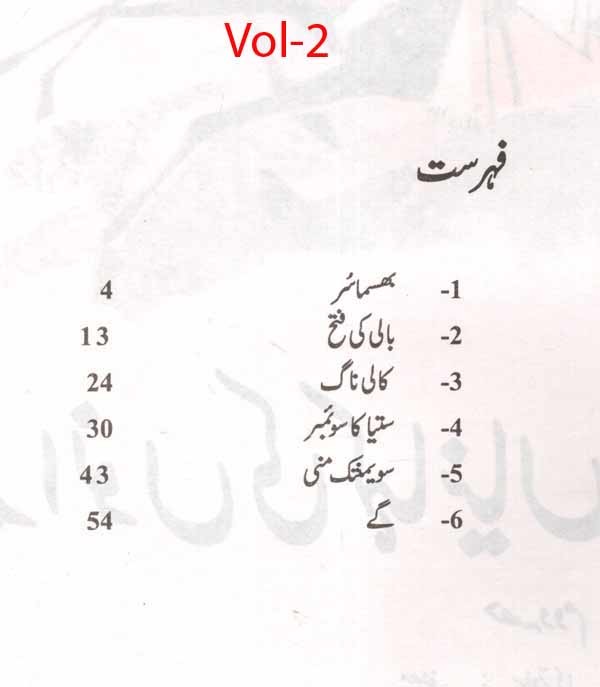 Vol-2
فہرست
1- بھسماسُر 4
2- بالی کی فتح 13
3- کالی ناگ 24
4- ستیا کا سوئمبر 30
5- سویمنتک منی 43
6- گے 54